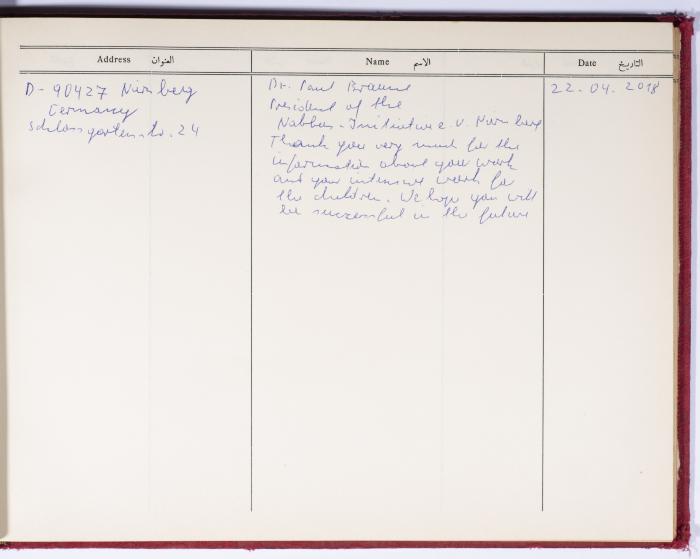 Address العنوان
Name الاسم
Date التاريخ
D- 90427 Nürnberg
Germany
Schlossgartenstr. 24
Dr. Paul
President of the
Nabbus-Initiative e.V. Nürnberg
Thank you very much for the
information about your work
and your intensive work for
the children. We hope you will
be successful in the future
22.04.2018